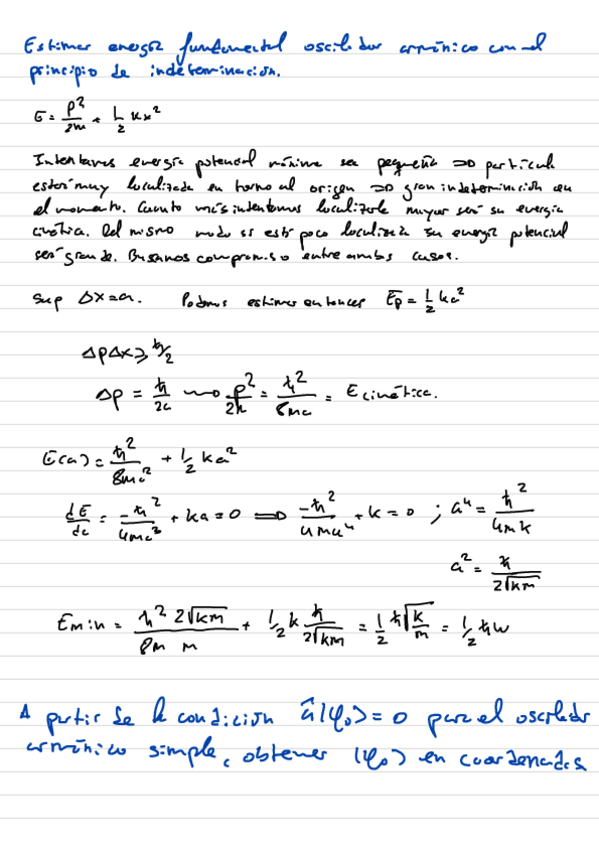 Estimar energía fundamental oscilador armónico con el
principio de indeterminación.
E = p²/2m + 1/2 kx²
Intentamos energía potencial mínima sea pequeña ⇒ partícula
estará muy localizada en torno al origen ⇒ gran indeterminación en
el momento. Cuanto más intentemos localizarla mayor será su energía
cinética. Del mismo modo si está poco localizada su energía potencial
será grande. Buscamos compromiso entre ambos casos.
Sup Δx=a. Podemos estimar entonces Ep = 1/2 ka²
ΔpΔx ≥ ħ/2
Δp = ħ/2a ⟿ p²/2m = ħ²/8ma = E cinética.
E(a) = ħ²/8ma² + 1/2 ka²
dE/da = -ħ²/4ma³ + ka = 0 ⇒ -ħ²/4ma⁴ + k = 0 ; a⁴ = ħ²/4mk
a² = ħ/2√km
Emin = ħ² 2√km / 8m m + 1/2 k ħ/2√km = 1/2 ħ √k/m = 1/2 ħω
A partir de la condición â|φ₀⟩ = 0 para el oscilador
armónico simple, obtener |φ₀⟩ en coordenadas